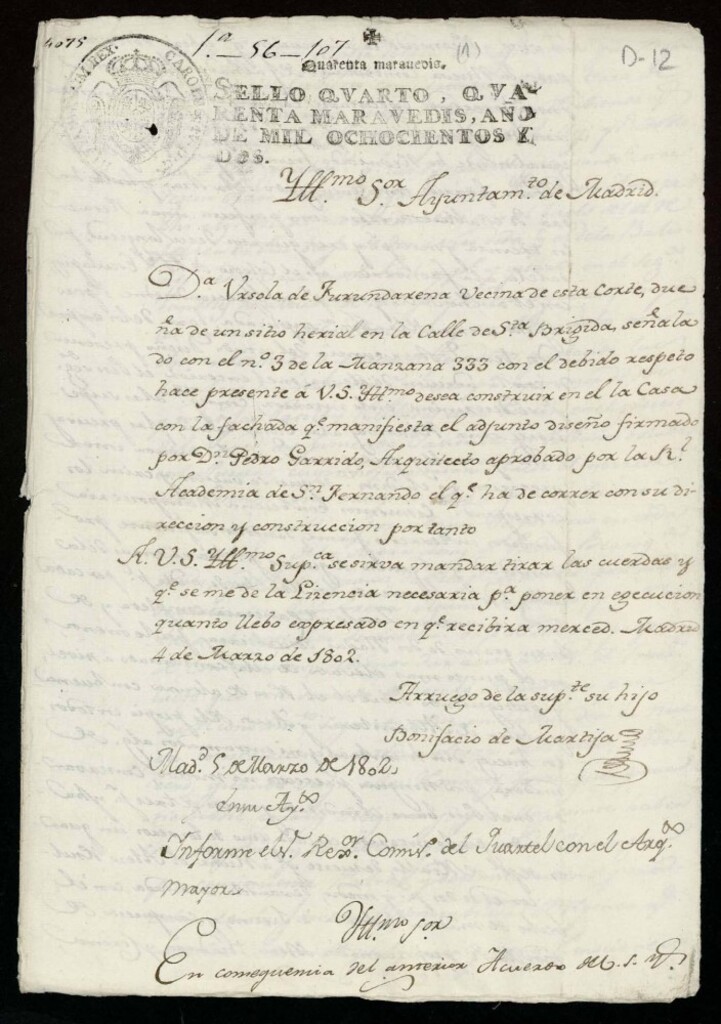 4075
1.ª - 56 - 107
(1)
D-12
Quarenta maravedis.
SELLO QVARTO, QVA
RENTA MARAVEDIS, AÑO
DE MIL OCHOCIENTOS Y
DOS.
Yll.mo S.or Ayuntam.to de Madrid.
D.a Vrsola de Furundarena Vecina de esta Corte, due
ña de un sitio herial en la Calle de S.ta Brigida, señala
do con el n.º 3 de la Manzana 333 con el debido respeto
hace presente á V.S. Yll.mo desea construir en el la Casa
con la fachada q.e manifiesta el adjunto diseño firmado
por D.n Pedro Garrido, Arquitecto aprobado por la R.l
Academia de S.n Fernando el q.e ha de correr con su di-
reccion y construccion por tanto
A. V.S. Yll.mo Sup.ca se sirva mandar tirar las cuerdas y
q.e se me de la Licencia necesaria p.a poner en egecucion
quanto llebo expresado en q.e recibira merced. Madrid
4 de Marzo de 1802.
Arruego de la sup.te su hijo
Bonifacio de Martija
Mad.d 5 de Marzo de 1802.
En su Ay.to
Informe el S.r Rex.or Comis.o del Quartel con el Arq.to
mayor.
Yll.mo S.or
En consequencia del anterior Acuerdo de V. S. Y.